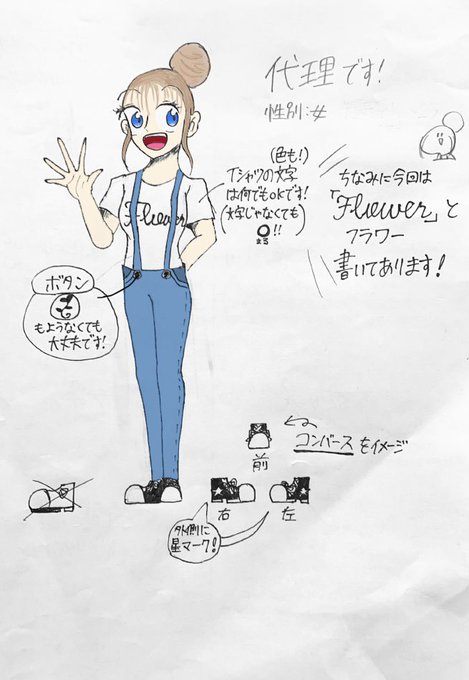 代理です!
性別:女
(色も!)
Tシャツの文字
は何でもOKです!
(文字じゃなくても)
○!!
まる
ちなみに今回は
「Flower」と
フラワー
書いてあります!
Flower
ボタン
もようなくても
大丈夫です!
コンバースをイメージ
前
右
左
外側に
星マーク!